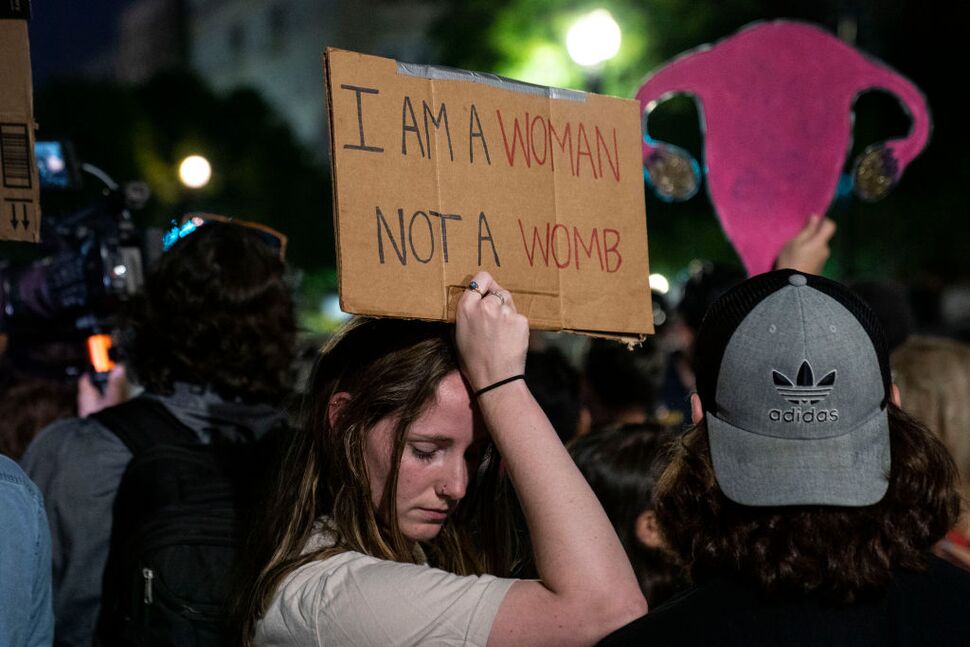 I AM A WOMAN
NOT A WOMB
adidas